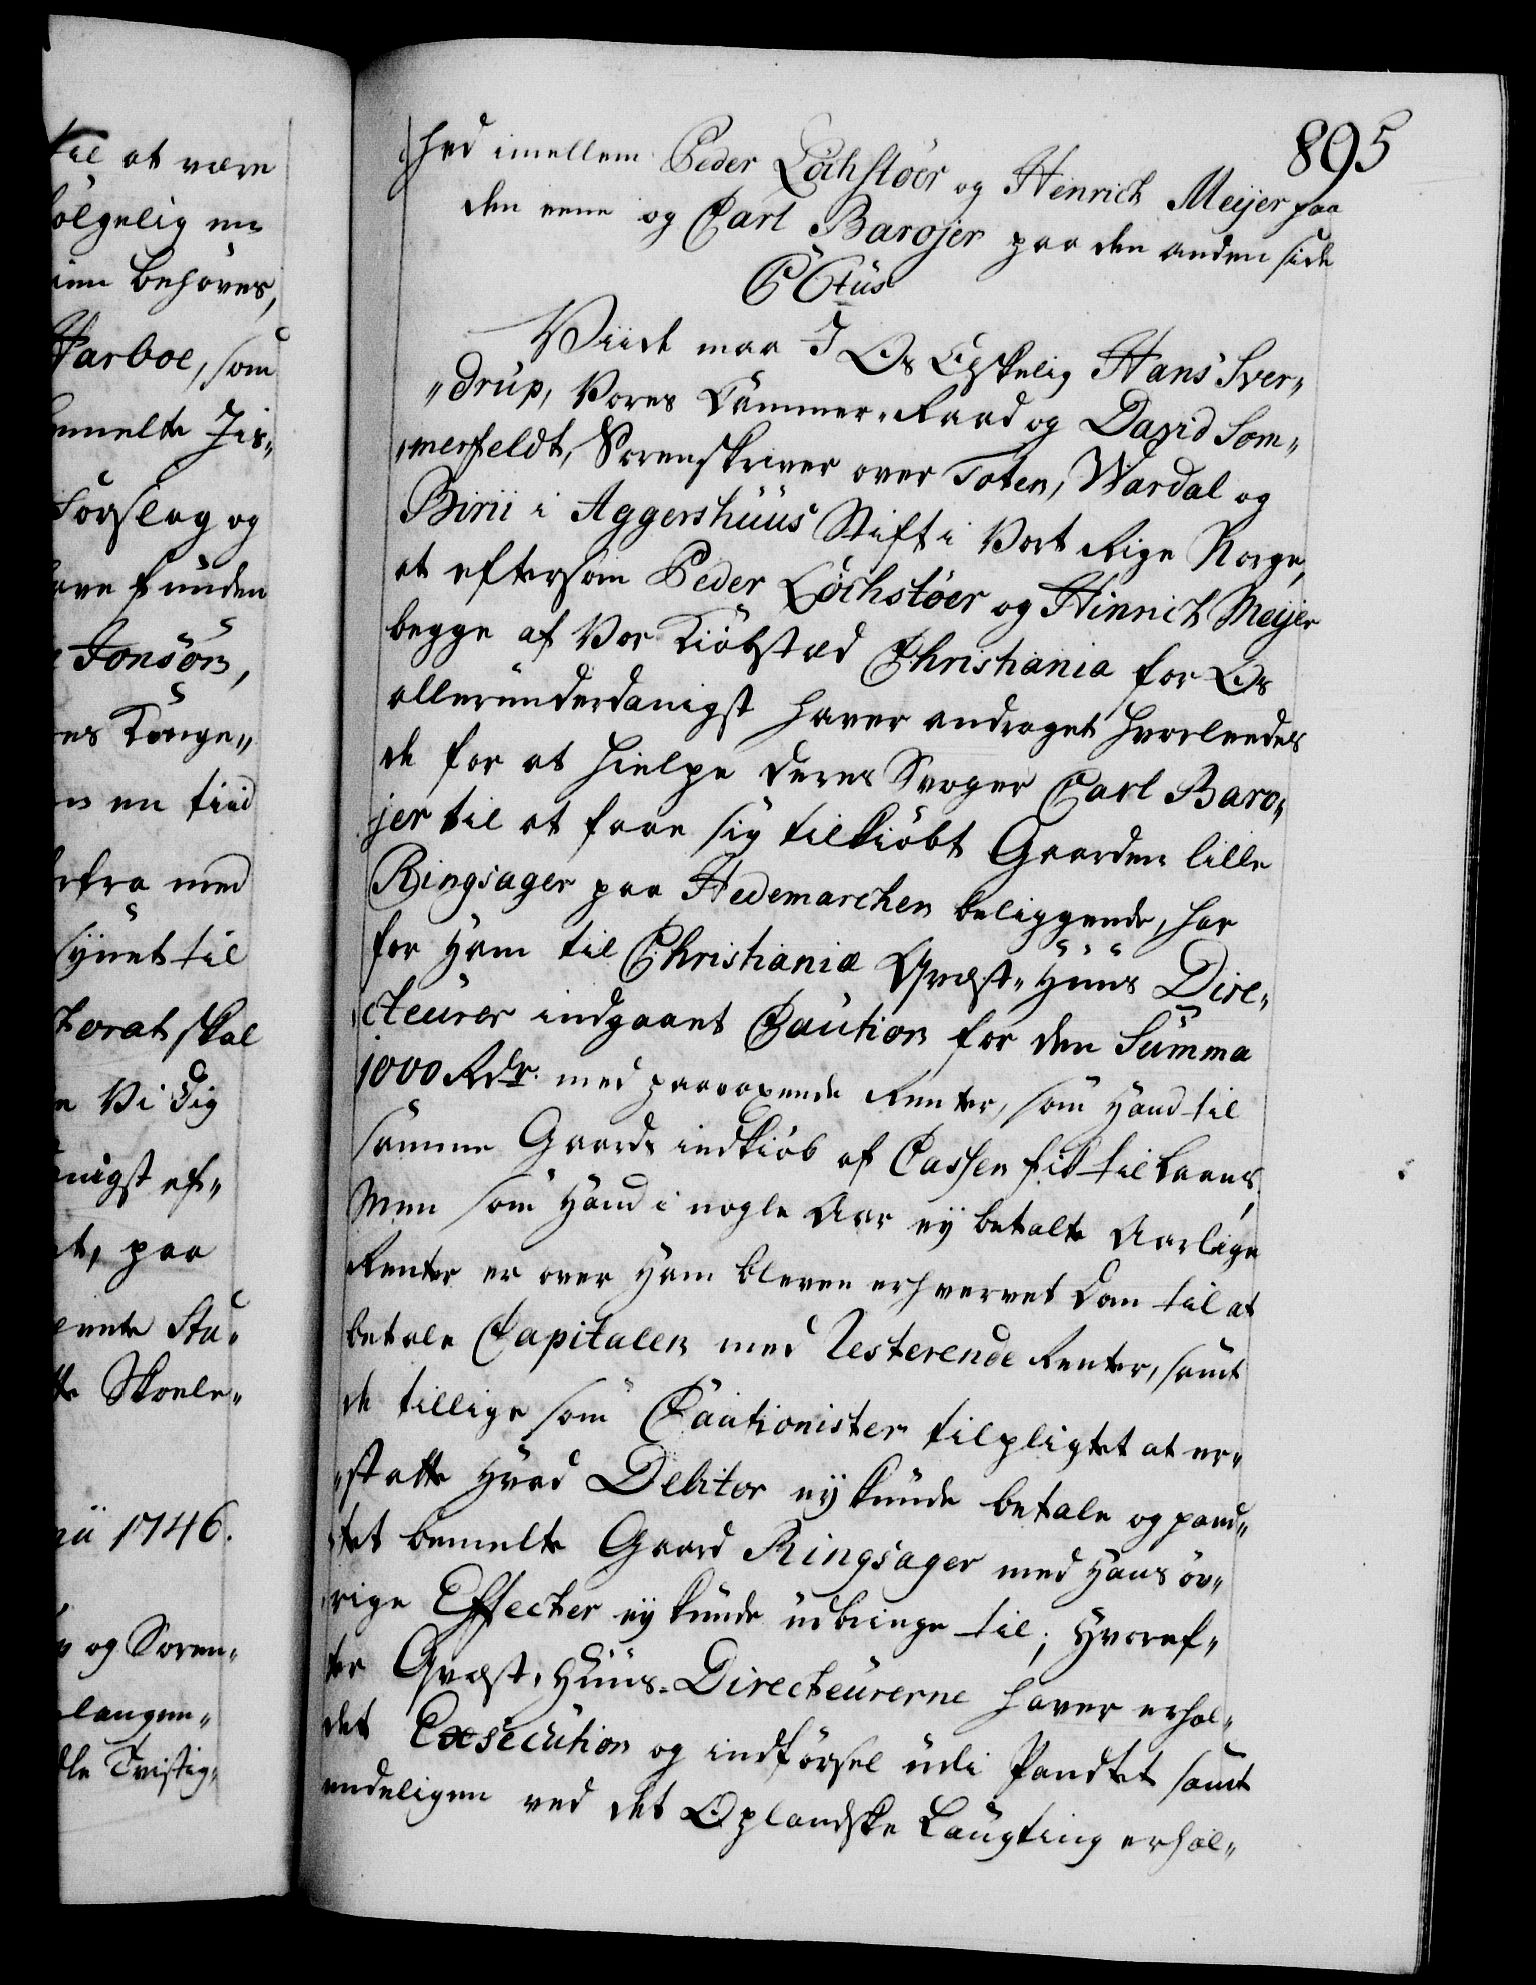 til at være
følgelig en
behøves,
Harboe, som
Forslag og
funden
Jonsön,
en tiid
fra med
synet til
torat skal
Vi dig
nigst ef„
paa
Stu„
Skoele„
1746.
og Soren„
langen„
Tvistig„
895
hed imellem Peder Löchstöer og Hinrich Meijer paa
den eene og Carl Barojer paa den anden side
C Ctus
Viide maa I Os Elskelig Hans Sver„
„drup, Vores Cammer-Raad og David Som„
„merfeldt, Sorenskriver over Toten, Wardal og
Birii i Aggershuus Stift i Vort Rige Norge,
at eftersom Peder Löchstöer og Hinrich Meijer
begge af Vor Kiöbstæd Christiania for Os
allerunderdanigst haver andraget hvorleedes
de for at hielpe deres Svoger Carl Baro„
jer til at faae sig tilkiöbt Gaarden lille
Ringsager paa Hedemarchen beliggende, har
for ham til Christaniæ Qvæst-Huus Dire„
cteurer indgaaet Caution for den Summa
1000 Rdr. med paavoxende Renter, som hand til
samme Gaards indkiöb af Cassen fik til Laans,
Men som hand i nogle Aar ej betalte Aarlige
Renter er over ham bleven erhvervet Dom til at
betale Capitalen med Resterende Renter, samt
de tillige som Cautionister tilpligtet at er„
„statte hvad Debitor ej kunde betale og pand„
„tet bemelte Gaard Ringsager med hans öv„
„rige Effecter ej kunde udbringe til; hvoref„
ter Qvæst-Huus-Directeurerne haver erhol„
det Exsecution og indförsel udi Pandtet samt
endeligen ved det Oplandske Laugting erhol„